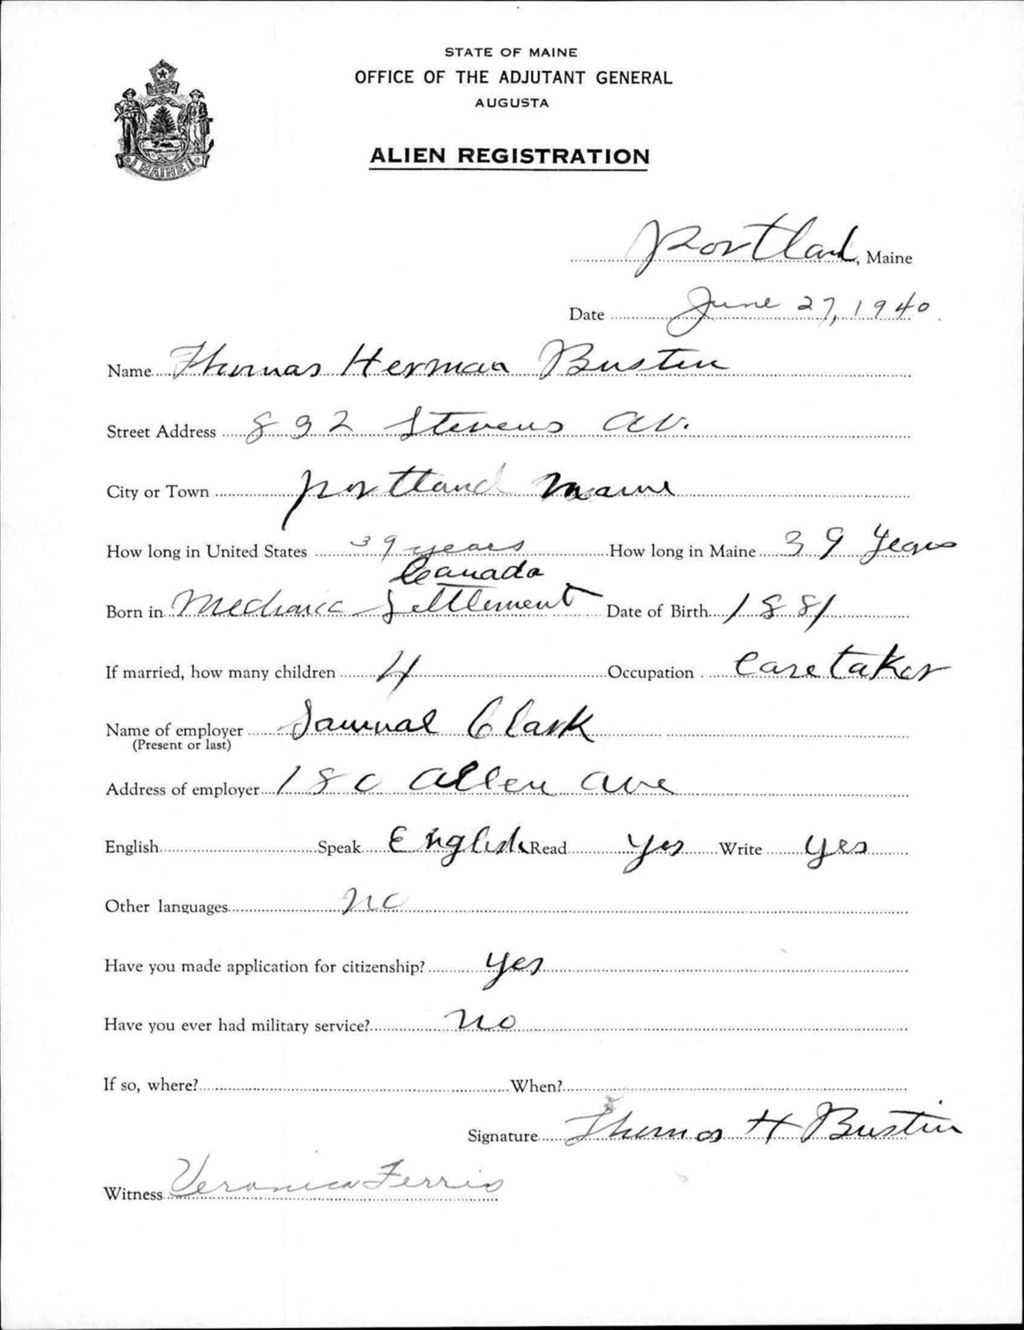 STATE OF MAINE
OFFICE OF THE ADJUTANT GENERAL
AUGUSTA
ALIEN REGISTRATION
MAINE
Portland, Maine
Date June 27, 1940
Name Thomas Herman Bustin
Street Address 832 Stevens Av.
City or Town Portland Maine
How long in United States 39 years How long in Maine 39 Years
Canada
Born in Mechanic Settlement Date of Birth 1881
If married, how many children 4 Occupation Caretaker
Name of employer Samual Clark
(Present or last)
Address of employer 180 Allen Ave
English Speak English Read Yes Write Yes
Other languages no
Have you made application for citizenship? Yes
Have you ever had military service? No
If so, where? When?
Signature Thomas H Bustin
Witness Veronica Ferris